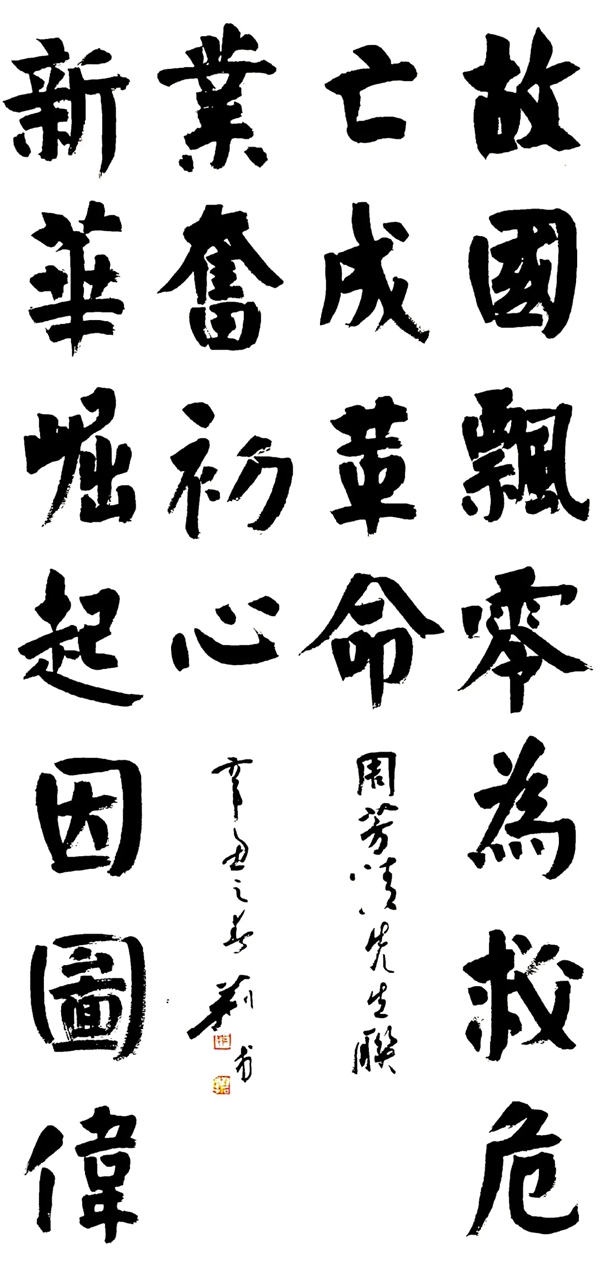 故國飄零為救危
亡成革命
周芳先生聯
新華崛起因圖偉
業奮初心
辛丑之春